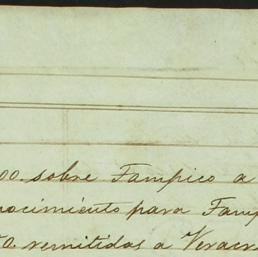 00 sobre Tampico a
nocimiento para Tamp
a remitidos a Veracr